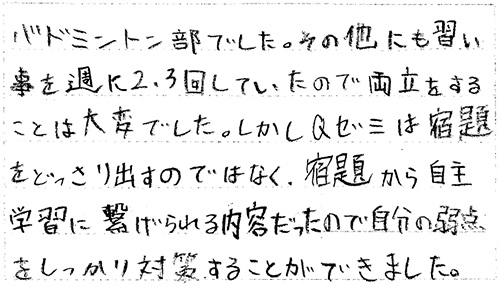 バドミントン部でした。その他にも習い
事を週に2、3回していたので両立をする
ことは大変でした。しかしQゼミは宿題
をどっさり出すのではなく、宿題から自主
学習に繋げられる内容だったので自分の弱点
をしっかり対策することができました。